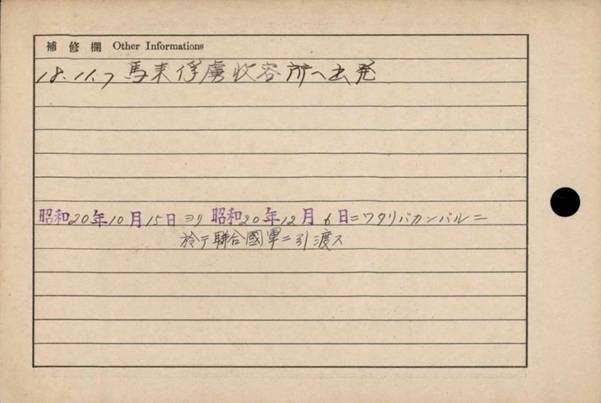 補修欄 Other Informations
18.11.7 馬来俘虜收容所へ出発
昭和20年10月15日ヨリ昭和20年12月6日ニワタリパカンバルニ
於テ聯合國軍ニ引渡ス